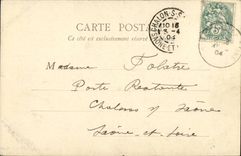 CARTE POSTALE
Ce côté est exclusivement réservé
CHALON-S-S
10 15
5-4
04
SAONE-ET-
04
Madame Folatre
Poste Restante
Chalons s/ Saône
Saône et Loire